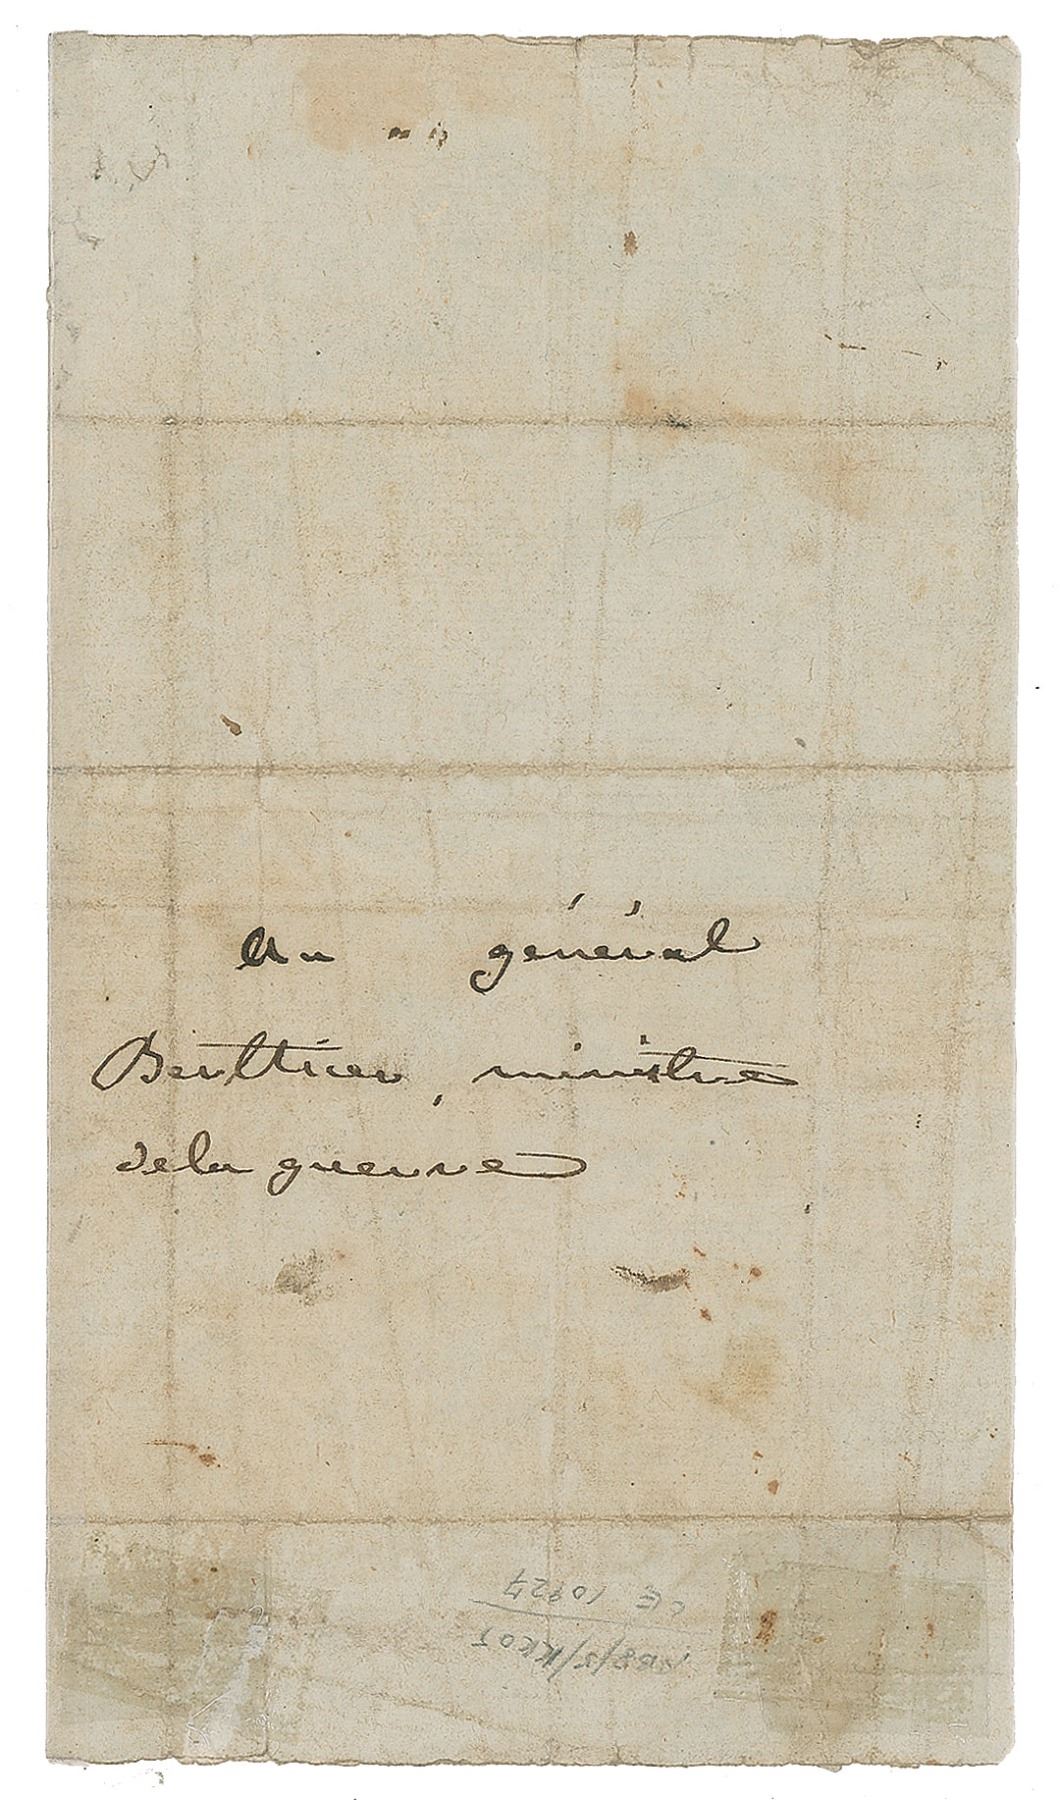 Au général
Berthier, ministre
de la guerre
CE 10927